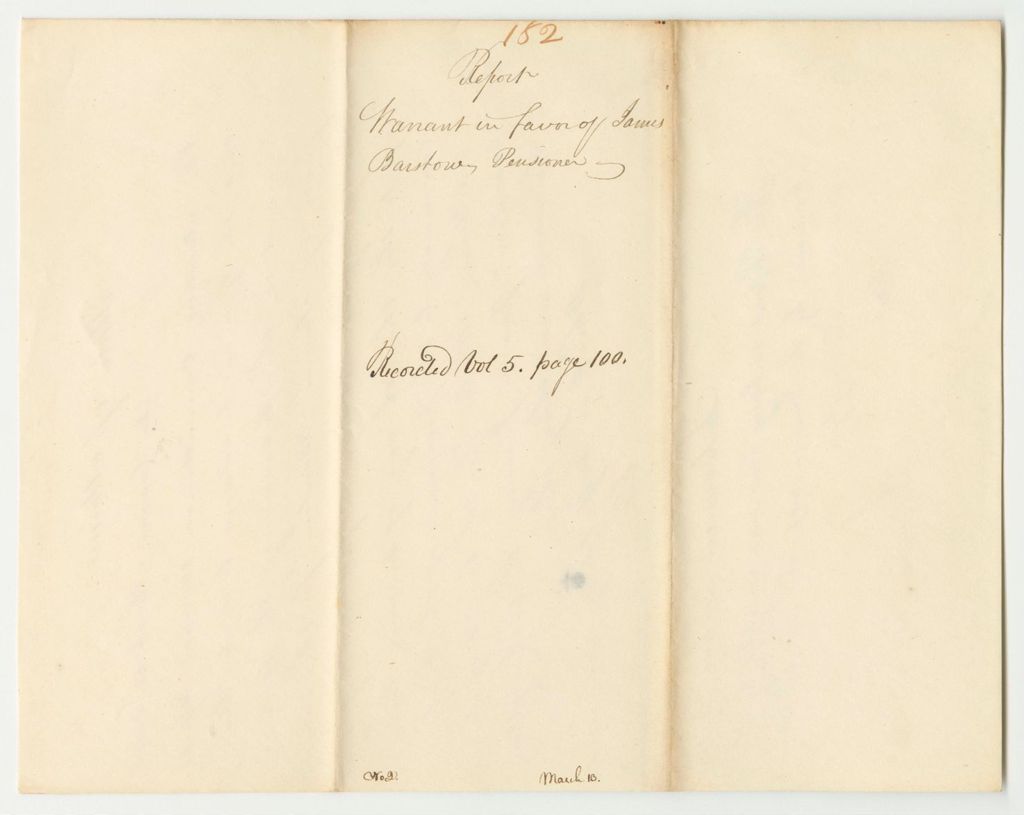 182
Report
Warrant in favor of James
Barstow, Pensioner
Recorded Vol 5. page 100.
No. 2. March 13.